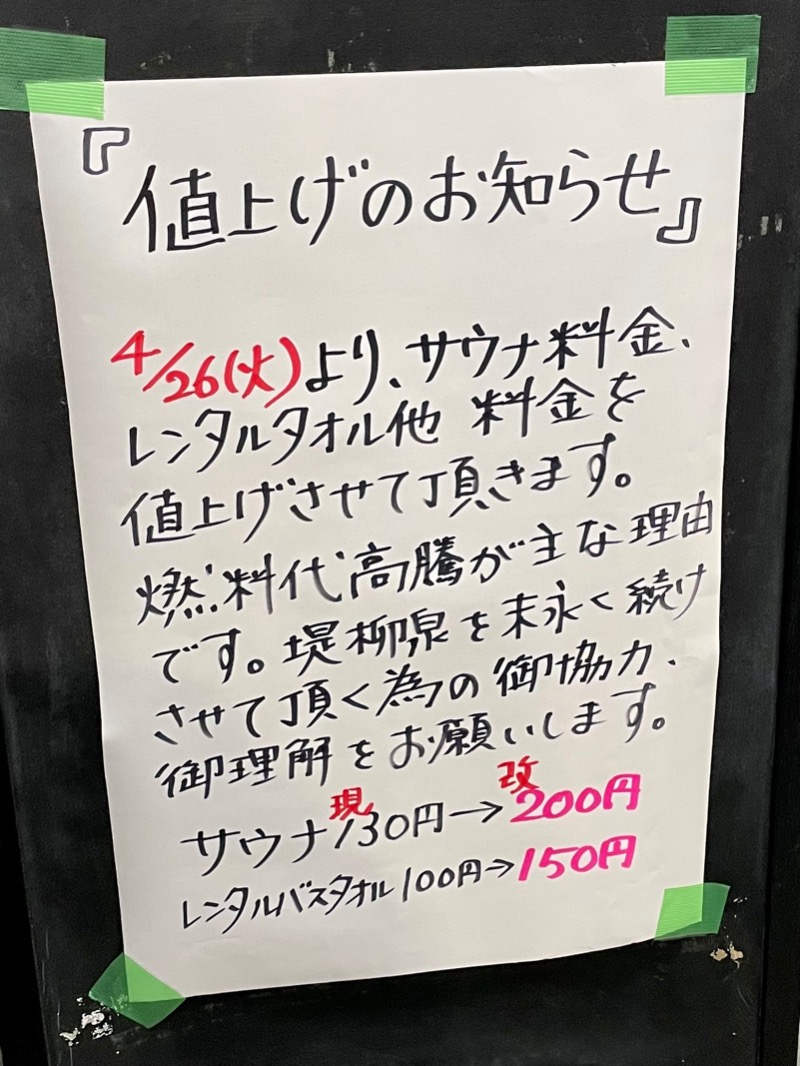 『値上げのお知らせ』
4/26(火)より、サウナ料金、
レンタルタオル他 料金を
値上げさせて頂きます。
燃料代高騰が主な理由
です。堤柳泉を末永く続け
させて頂く為の御協力、
御理解をお願いします。
サウナ現130円→改200円
レンタルバスタオル100円→150円